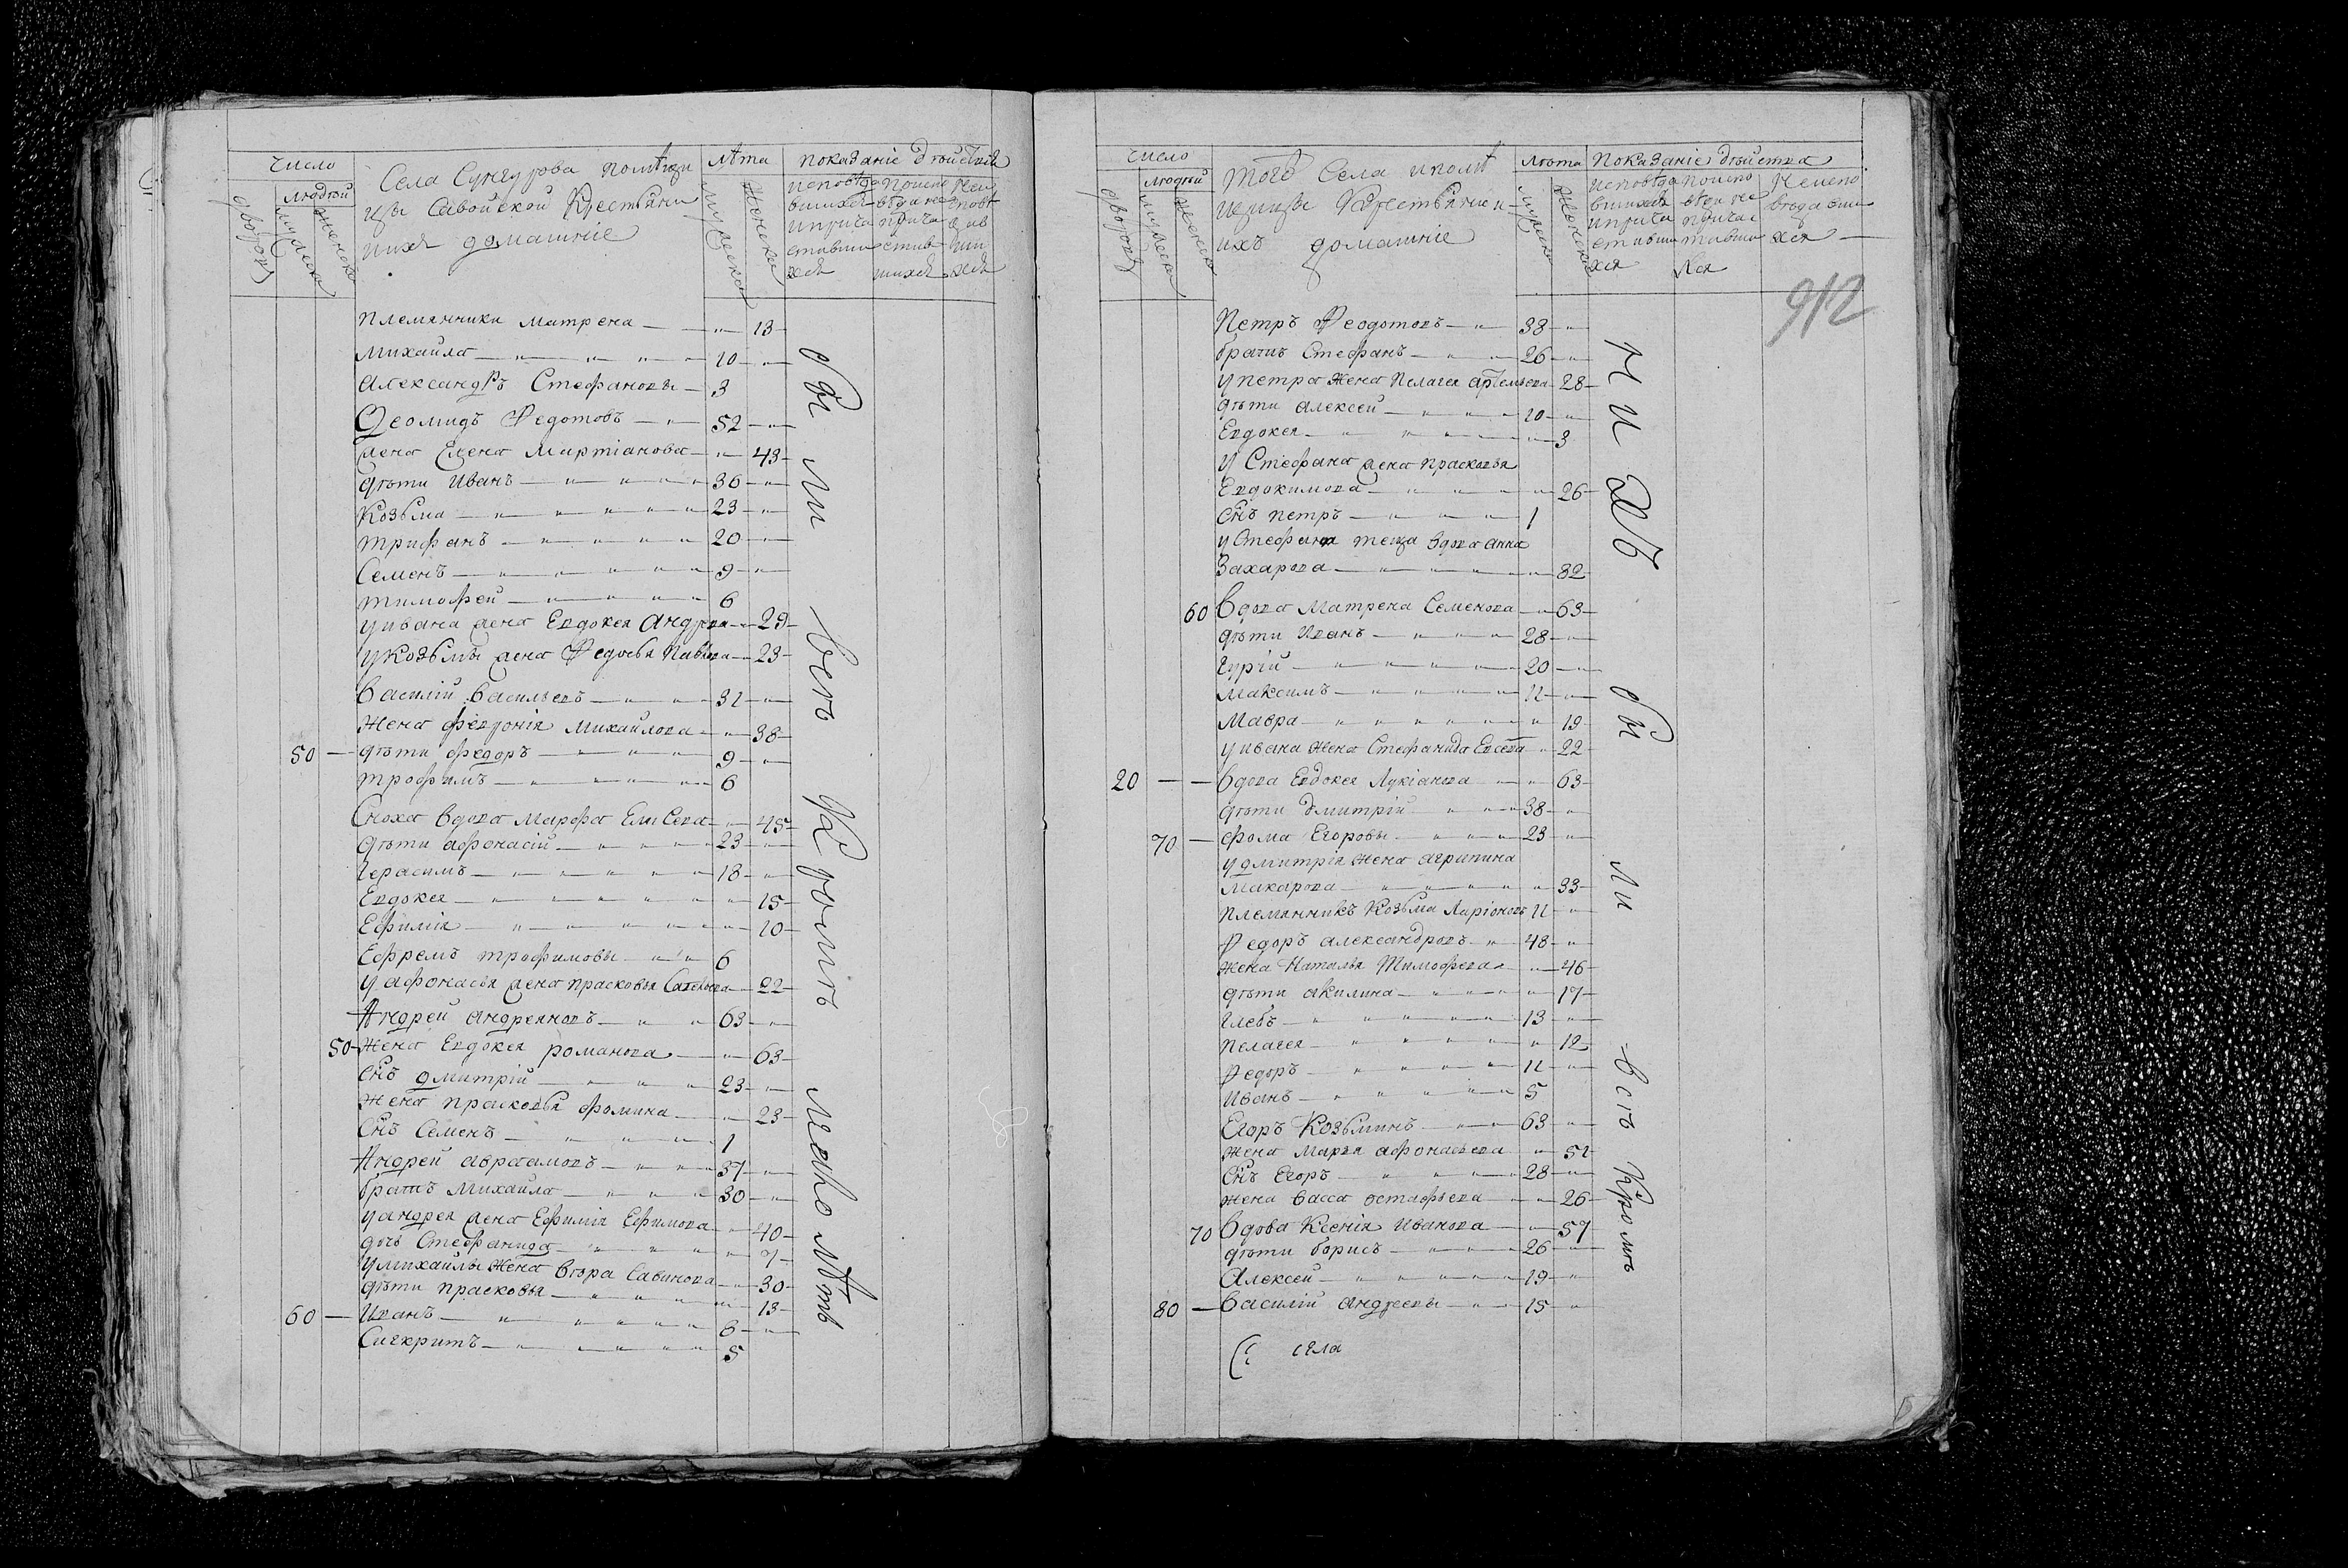 число
людѣй
дворовъ
мужеска
женска
Села Сунгурова помѣщи
цы Савойской Крестьяни
ихъ домашніе
лѣта
мужеска
женска
показаніе дѣйства
исповѣда
вшихся
и прича
стивши
хся
поиспо
вѣда не
прича
стив
шихся
Неи
сповѣ
дав
ши
хся
племянники матрена 13
михайла 10
александръ Стефановы 3
Феомидъ Федотовъ 52
жена Елена Мартіанова 43
дѣти Иванъ 30
Козьма 23
трифанъ 20
Семенъ 9
тимофей 6
у ивана жена Евдокея Андрева 29
у Козьмы жена Федосья Павлова 23
василій васильевъ 31
жена февронія михайлова 38
50 дѣти федоръ 9
трофимъ 6
Сноха вдова марфа Елисева 45
дѣти афонасій 23
герасимъ 18
Евдокея 15
Ефимія 10
Ефремъ трофимовы 6
у афонасья жена прасковья Савельева 22
Андрей андреяновъ 63
50 жена Евдокея романова 63
сн͠ъ дмитрій 23
жена прасковья фомина 23
сн͠ъ Семенъ 1
Андрей аврамовъ 37
братъ михаила 30
у андрея жена Ефимія Ефимова 40
дочь Стефанида 7
у михайлы жена втора Савинова 30
дѣти прасковья 13
60 Иванъ 8
Сигкритъ 5
были
всѣ
Кромѣ
мало лѣтъ
число
людѣй
дворовъ
мужеска
женска
того Села и помѣ
щицы Крестьяне и
ихъ домашніе
лѣта
мужеска
женска
показаніе дѣйства
исповѣда
вшихся
и прича
стивши
хся
поиспо
вѣди не
причас
тивши
хся
Неиспо
вѣдавши
хся
912
Петръ Феодотовъ 38
братъ Стефанъ 26
у петра жена Пелагея артемьева 28
дѣти алексей 10
Евдокея 3
у Стефана жена прасковья
Евдокимова 26
сн͠ъ петръ 1
у Стефана теща вдова анна
Захарова 82
60 вдова матрена Семенова 63
дѣти Иванъ 28
гурій 20
максимъ 11
мавра 19
у ивана жена Стефанида Евсева 22
20 вдова Евдокея Лукіанова 63
дѣти дмитрій 38
70 фома Егоровы 23
у дмитрія жена агрипина
макарова 33
племянникъ Козьма Ларіоновъ 11
Федоръ александровъ 48
жена Наталья Тимофева 46
дѣти акилина 17
глебъ 13
пелагея 12
Федоръ 11
иванъ 5
Егоръ Козьминъ 63
жена марья афонасьева 51
сн͠ъ Егоръ 28
жена васса остафьева 26
70 вдова Ксенія Иванова 57
дѣти борисъ 26
Алексей 19
80 василій андреевы 15
села
были
всѣ
Кромѣ